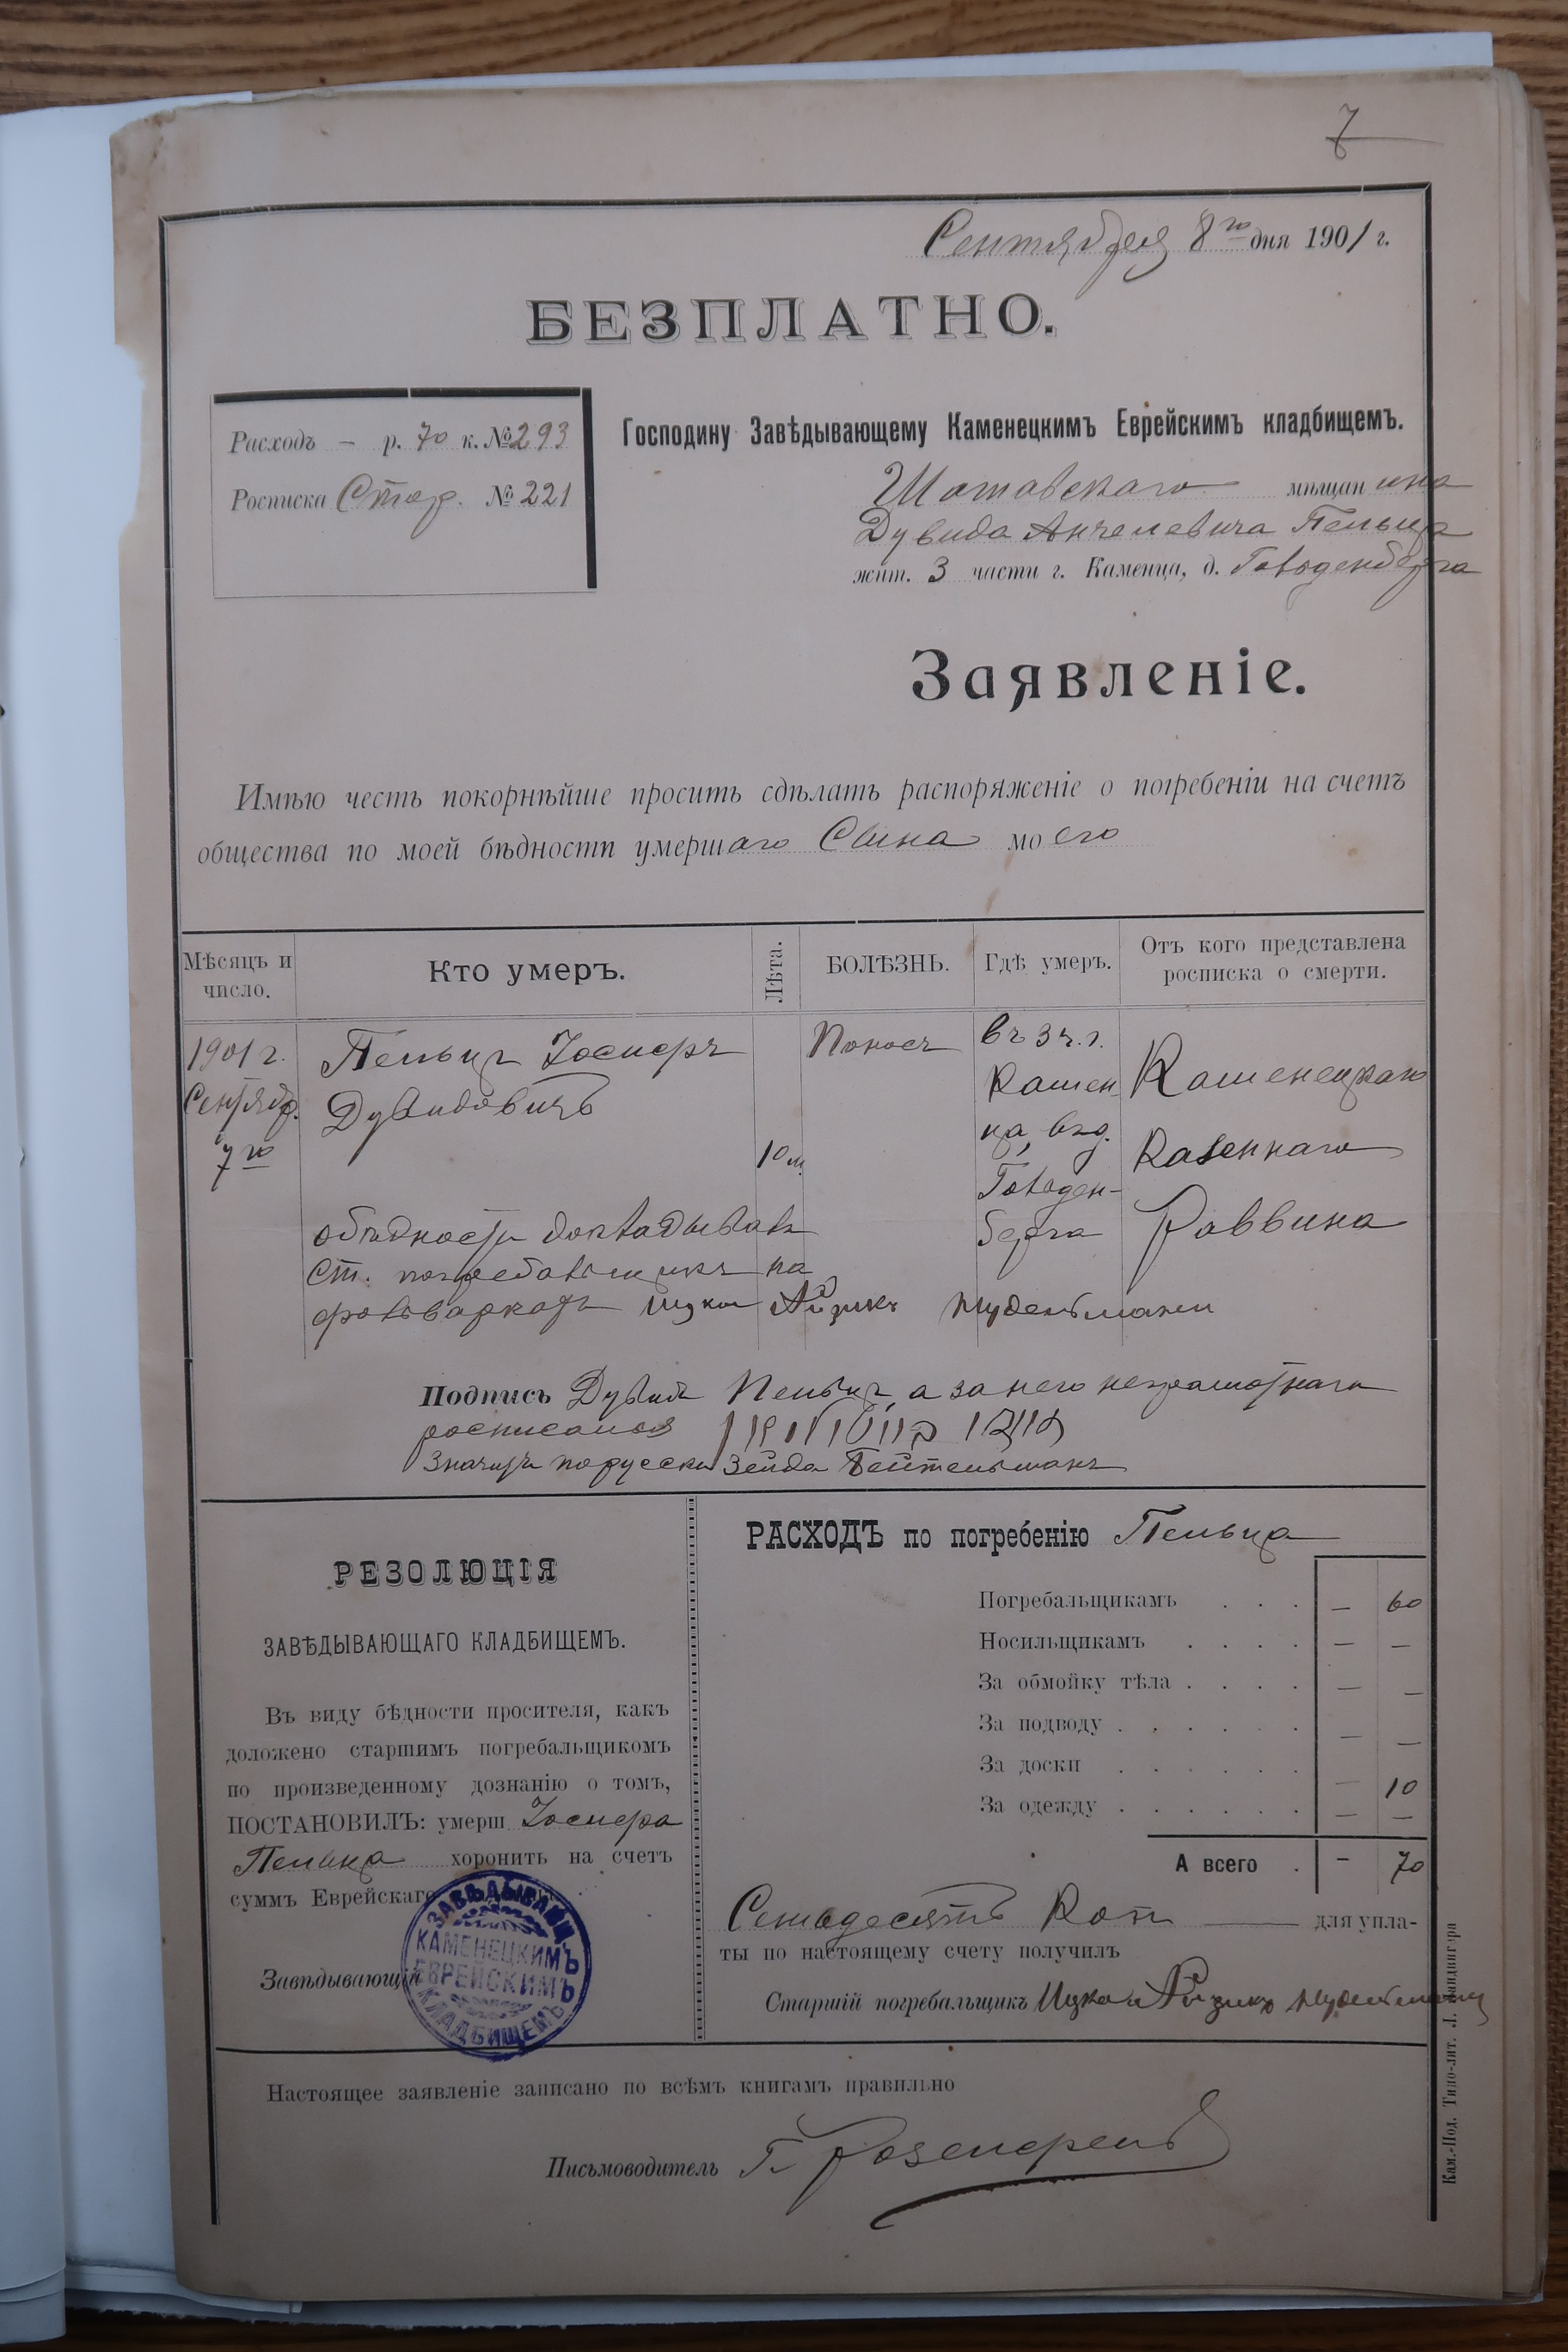 7
Сентября 8го дня 1901 г.
БЕЗПЛАТНО.
Расходъ — р. 70 к. № 293
Росписка Стар. № 221
Господину Завѣдывающему Каменецкимъ Еврейскимъ кладбищемъ.
Шатавскаго мѣщанина
Дувида Анчелевича Пельца
жит. 3 части г. Каменца, д. Гольденберга
Заявленіе.
Имѣю честь покорнѣйше просить сдѣлать распоряженіе о погребеніи на счетъ
общества по моей бѣдности умершаго Сына моего
Мѣсяцъ и число.
Кто умеръ.
Лѣта.
БОЛѢЗНЬ.
Гдѣ умеръ.
Отъ кого представлена росписка о смерти.
1901 г.
Сентябр.
7го
Пельцъ Иосиеръ
Дувидовичъ
10 м.
Поносъ
въ 3 ч. г.
Камен
ца, въ д.
Гольден-
берга
Каменецкаго
Казеннаго
Раввина
обѣдности докладывалъ
ст. погребальщикъ на
фольваркахъ Ицко Айзикъ
Подпись Дувидъ Пельцъ, а за него неграмотнаго
росписался
значитъ порусски Зейда Тейтельманъ
РЕЗОЛЮЦІЯ
ЗАВѢДЫВАЮЩАГО КЛАДБИЩЕМЪ.
Въ виду бѣдности просителя, какъ
доложено старшимъ погребальщикомъ
по произведенному дознанію о томъ,
ПОСТАНОВИЛЪ: умерш Иосиера
Пельца хоронить на счетъ
суммъ Еврейскаго
Завѣдывающій
ЗАВѢДЫВАЮЩ.
КАМЕНЕЦКИМЪ
ЕВРЕЙСКИМЪ
КЛАДБИЩЕМЪ
РАСХОДЪ по погребенію Пельца
Погребальщикамъ . . . — 60
Носильщикамъ . . . . — —
За обмойку тѣла . . . . — —
За подводу . . . . . — —
За доски . . . . . . — 10
За одежду . . . . . . — —
А всего . — 70
Семьдесятъ Коп — для упла-
ты по настоящему счету получилъ
Старшій погребальщикъ Ицко Айзикъ
Настоящее заявленіе записано по всѣмъ книгамъ правильно
Письмоводитель Г.
Кам.-Под. Типо-лит. Л.